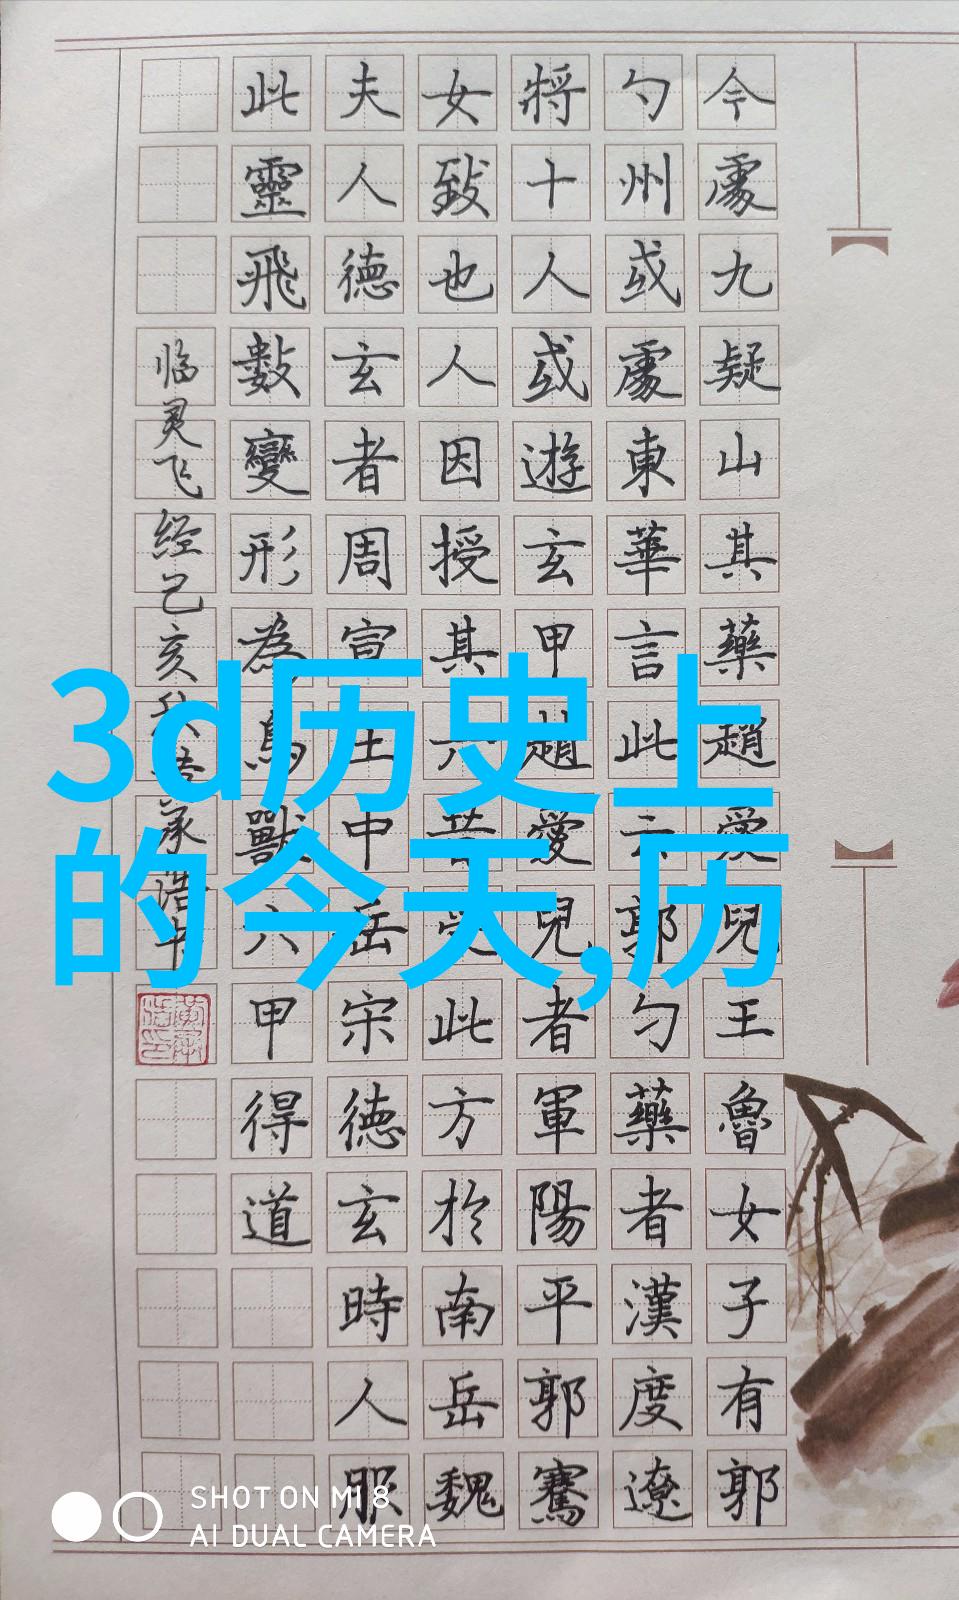 今處九疑山其藥趙愛兒王魯女子有郭
勺州或處東華言此云郭勺藥者漢度遼
將十人或遊玄甲趙愛兒者軍陽平郭騫
女致也人因授其六甲此方於南岳魏
夫人德玄者周宣王中岳宋德玄時人服
此靈飛數變形為鳥獸六甲得道
临灵飞经己亥承浩
3d历史上
的今天,历
SHOT ON MI 8
AI DUAL CAMERA